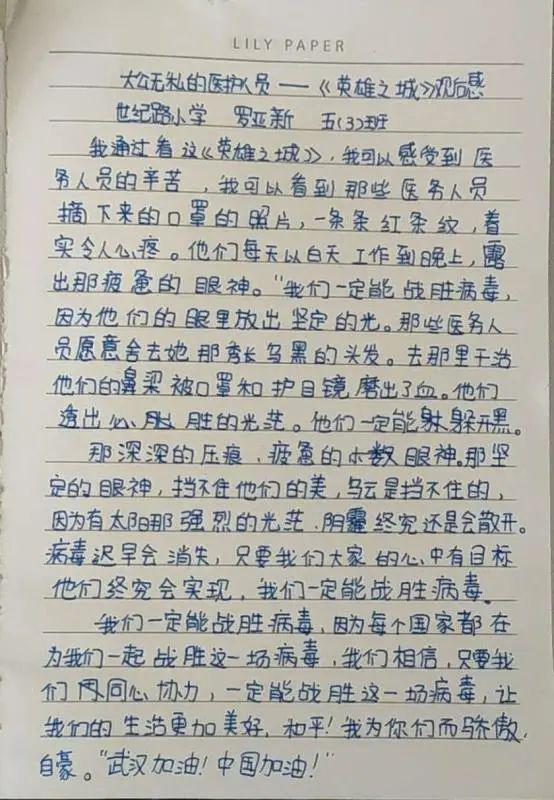 LILY PAPER
大公无私的医护人员——《英雄之城》观后感
世纪路小学 罗亚新 五(3)班
我通过看这《英雄之城》，我可以感受到医
务人员的辛苦，我可以看到那些医务人员
摘下来的口罩的照片，一条条红条纹，着
实令人心疼。他们每天从白天工作到晚上，露
出那疲惫的眼神。“我们一定能战胜病毒，
因为他们的眼里放出坚定的光。那些医务人
员愿意舍去她那秀长乌黑的头发。去那里干活
他们的鼻梁被口罩和护目镜磨出了血。他们
透出心胜的光茫。他们一定能躲开黑。
那深深的压痕，疲惫的眼神。那坚
定的眼神，挡不住他们的美，乌云是挡不住的，
因为有太阳那强烈的光茫，阴霾终究还是会散开。
病毒迟早会消失，只要我们大家的心中有目标
他们终究会实现，我们一定能战胜病毒。
我们一定能战胜病毒，因为每个国家都在
为我们一起战胜这一场病毒，我们相信，只要我
们同心协力，一定能战胜这一场病毒，让
我们的生活更加美好，和平！我为你们而骄傲，
自豪。“武汉加油！中国加油！”